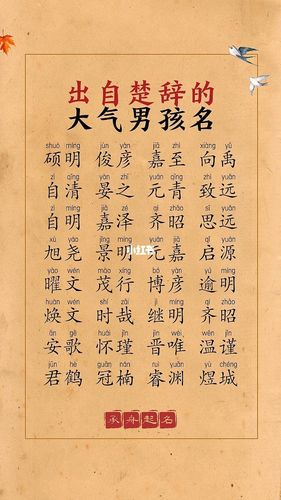 出自楚辞的
大气男孩名
shuò míng jùn yàn jiā zhì xiàng yǔ
硕明 俊彦 嘉至 向禹
zì qīng yàn zhī yuán qīng zhì yuǎn
自清 晏之 元青 致远
zì míng jiā zé qí zhāo sī yuǎn
自明 嘉泽 齐昭 思远
xù yáo jǐng míng yuán jiā qǐ yuán
旭尧 景明 元嘉 启源
小红书
yào wén mào xíng bó yàn yú míng
曜文 茂行 博彦 逾明
huàn wén shí zāi jì míng qí zhāo
焕文 时哉 继明 齐昭
ān gē huái jǐn jìn wéi wēn jǐn
安歌 怀瑾 晋唯 温谨
jūn hè guān nán ruì yuān yù chéng
君鹤 冠楠 睿渊 煜城
承舟起名